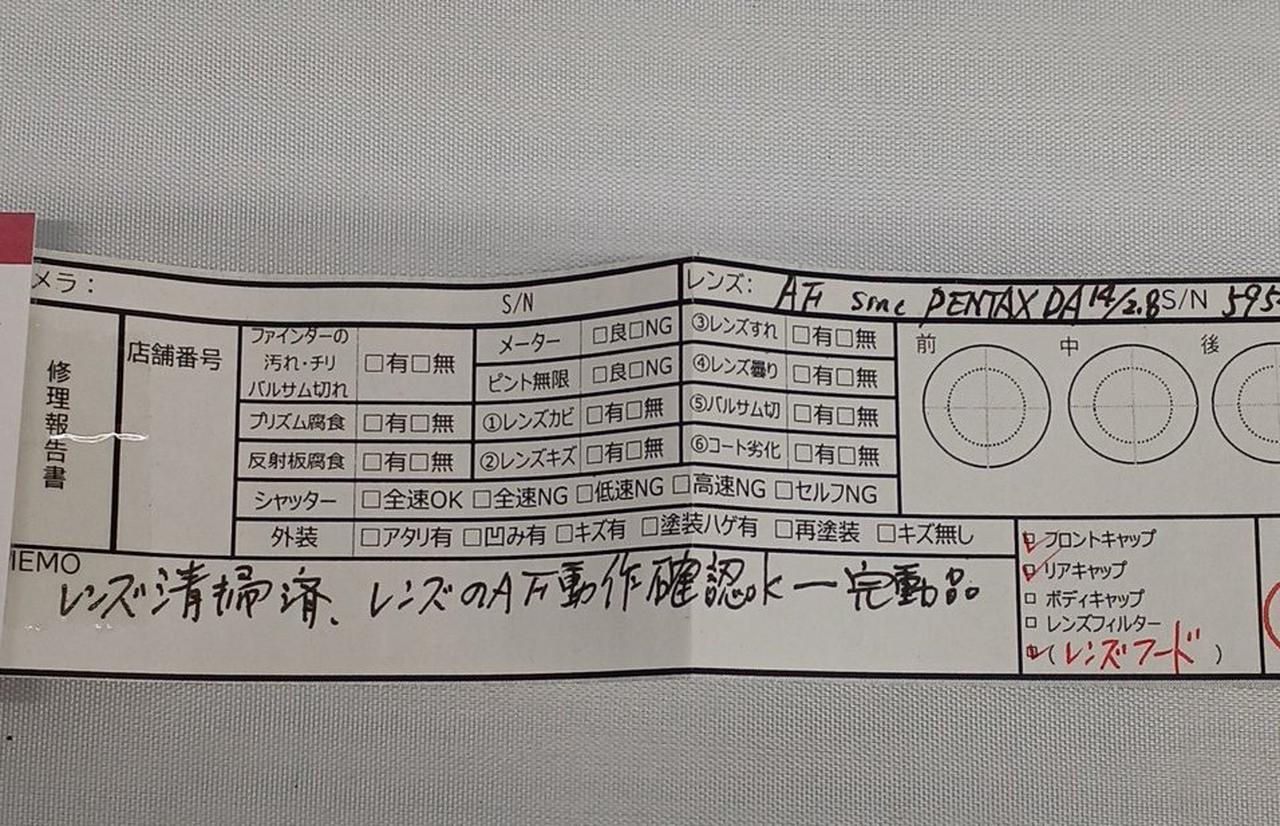 メラ：
S/N
レンズ: AF smc PENTAX DA 14/2.8 S/N 595
修理報告書
店舗番号
ファインダーの
汚れ・チリ
バルサム切れ
□有□無
プリズム腐食 □有□無
反射板腐食 □有□無
メーター □良□NG
ピント無限 □良□NG
①レンズカビ □有□無
②レンズキズ □有□無
③レンズすれ □有□無
④レンズ曇り □有□無
⑤バルサム切 □有□無
⑥コート劣化 □有□無
前 中 後
シャッター □全速OK □全速NG □低速NG □高速NG □セルフNG
外装 □アタリ有 □凹み有 □キズ有 □塗装ハゲ有 □再塗装 □キズ無し
MEMO
レンズ清掃済、レンズのAF動作確認ok 一完動品
☑フロントキャップ
☑リアキャップ
□ボディキャップ
□レンズフィルター
☑(レンズフード)